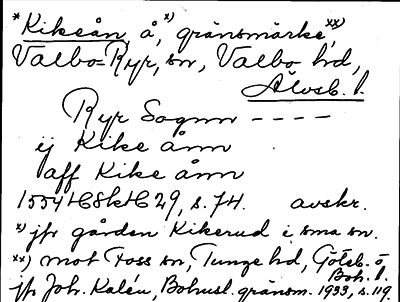 *Kikeån, å,ˣ⁾ gränsmärke,ˣˣ⁾
Valbo-Ryr, sn, Valbo hd,
Älvsb. l.
Ryr Sognn ----
ij Kike ånn
aff Kike ånn
1554 HSH HC 29, s. 74. avskr.
x) jfr gården Kikerud i sma sn.
xx) mot Foss sn, Tunge hd, Göteb. o
Boh. l.
jfr Joh. Kalén, Bohusl. gränsm. 1933, s. 119.